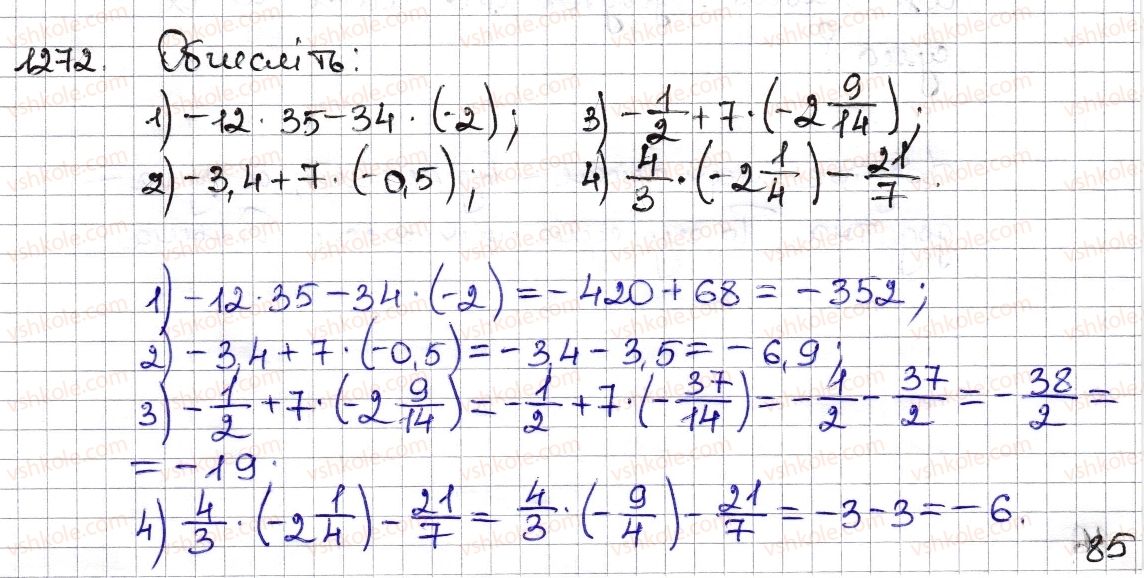 1272. Обчисліть:
1) -12 · 35 - 34 · (-2); 3) -1/2 + 7 · (-2 9/14);
2) -3,4 + 7 · (-0,5); 4) 4/3 · (-2 1/4) - 21/7.
1) -12 · 35 - 34 · (-2) = -420 + 68 = -352;
2) -3,4 + 7 · (-0,5) = -3,4 - 3,5 = -6,9;
3) -1/2 + 7 · (-2 9/14) = -1/2 + 7 · (-37/14) = -1/2 - 37/2 = -38/2 =
= -19.
4) 4/3 · (-2 1/4) - 21/7 = 4/3 · (-9/4) - 21/7 = -3 - 3 = -6.
85
vshkole.com